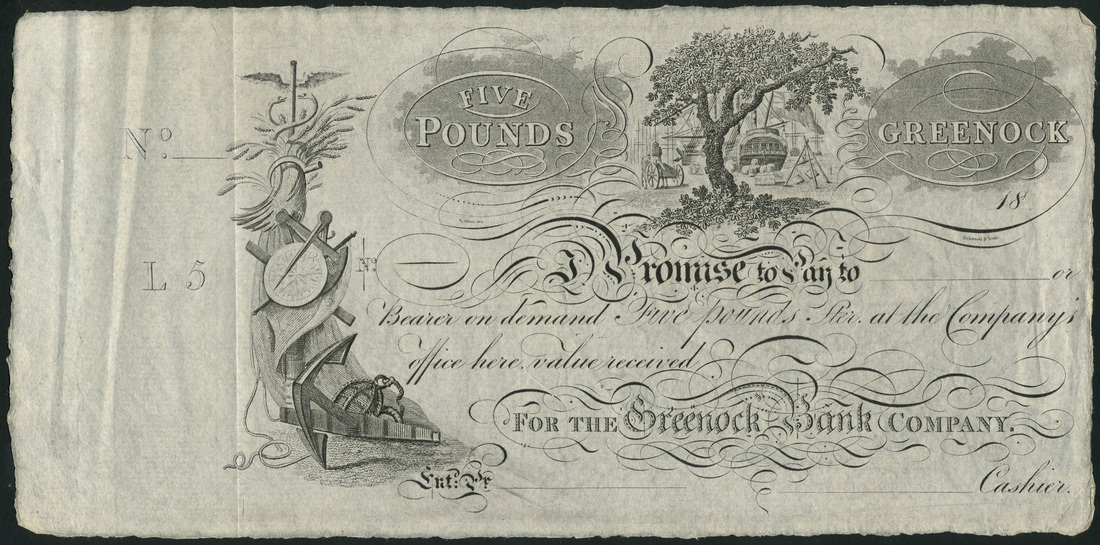 FIVE
POUNDS
GREENOCK
No.
18
L 5
No. I Promise to Pay to or
Bearer on demand Five pounds Ster. at the Company's
office here, value received
FOR THE Greenock Bank COMPANY.
Ent.d Pr.
Cashier.